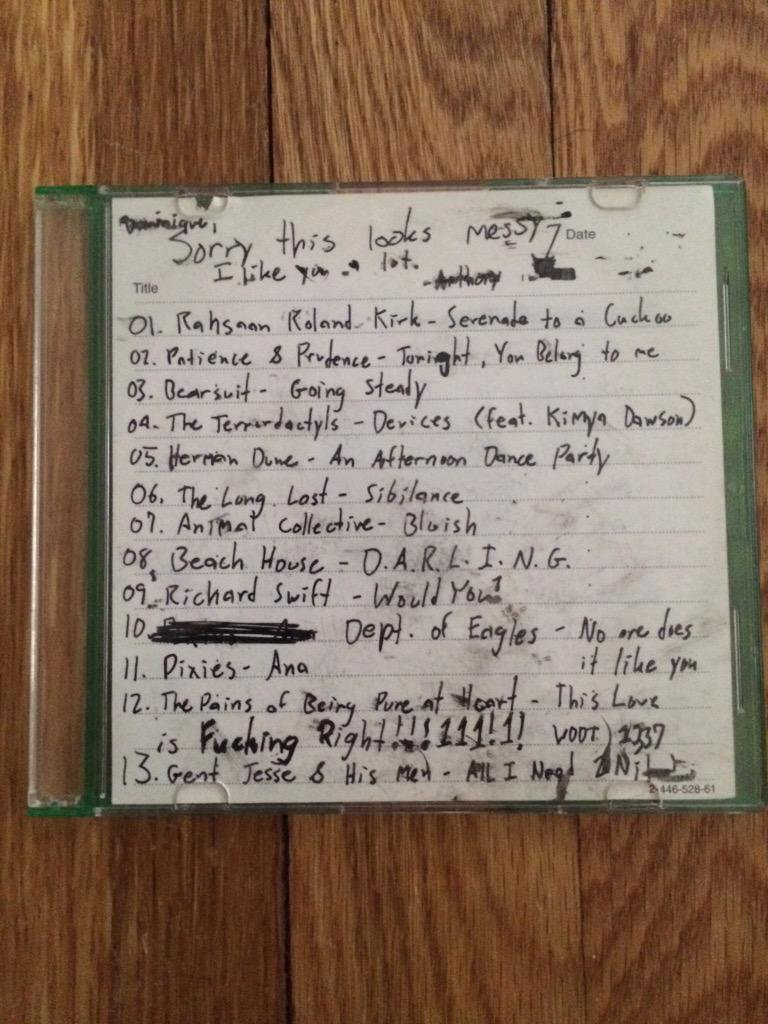 Dominique,
Sorry this looks messy
Date
I like you a lot.
- Anthony
Title
01. Rahsaan Roland Kirk - Serenade to a Cuckoo
02. Patience & Prudence - Tonight, You Belong to me
03. Bearsuit - Going Steady
04. The Terrordactyls - Devices (feat. Kimya Dawson)
05. Herman Dune - An Afternoon Dance Party
06. The Long Lost - Sibilance
07. Animal Collective - Bluish
08. Beach House - D.A.R.L.I.N.G.
09. Richard Swift - Would You?
10. Dept. of Eagles - No one does
it like you
11. Pixies - Ana
12. The Pains of Being Pure at Heart - This Love
is Fucking Right!!!111!1! WOOT) 1337
13. Gent Jesse & His Men - All I Need
2-446-528-61